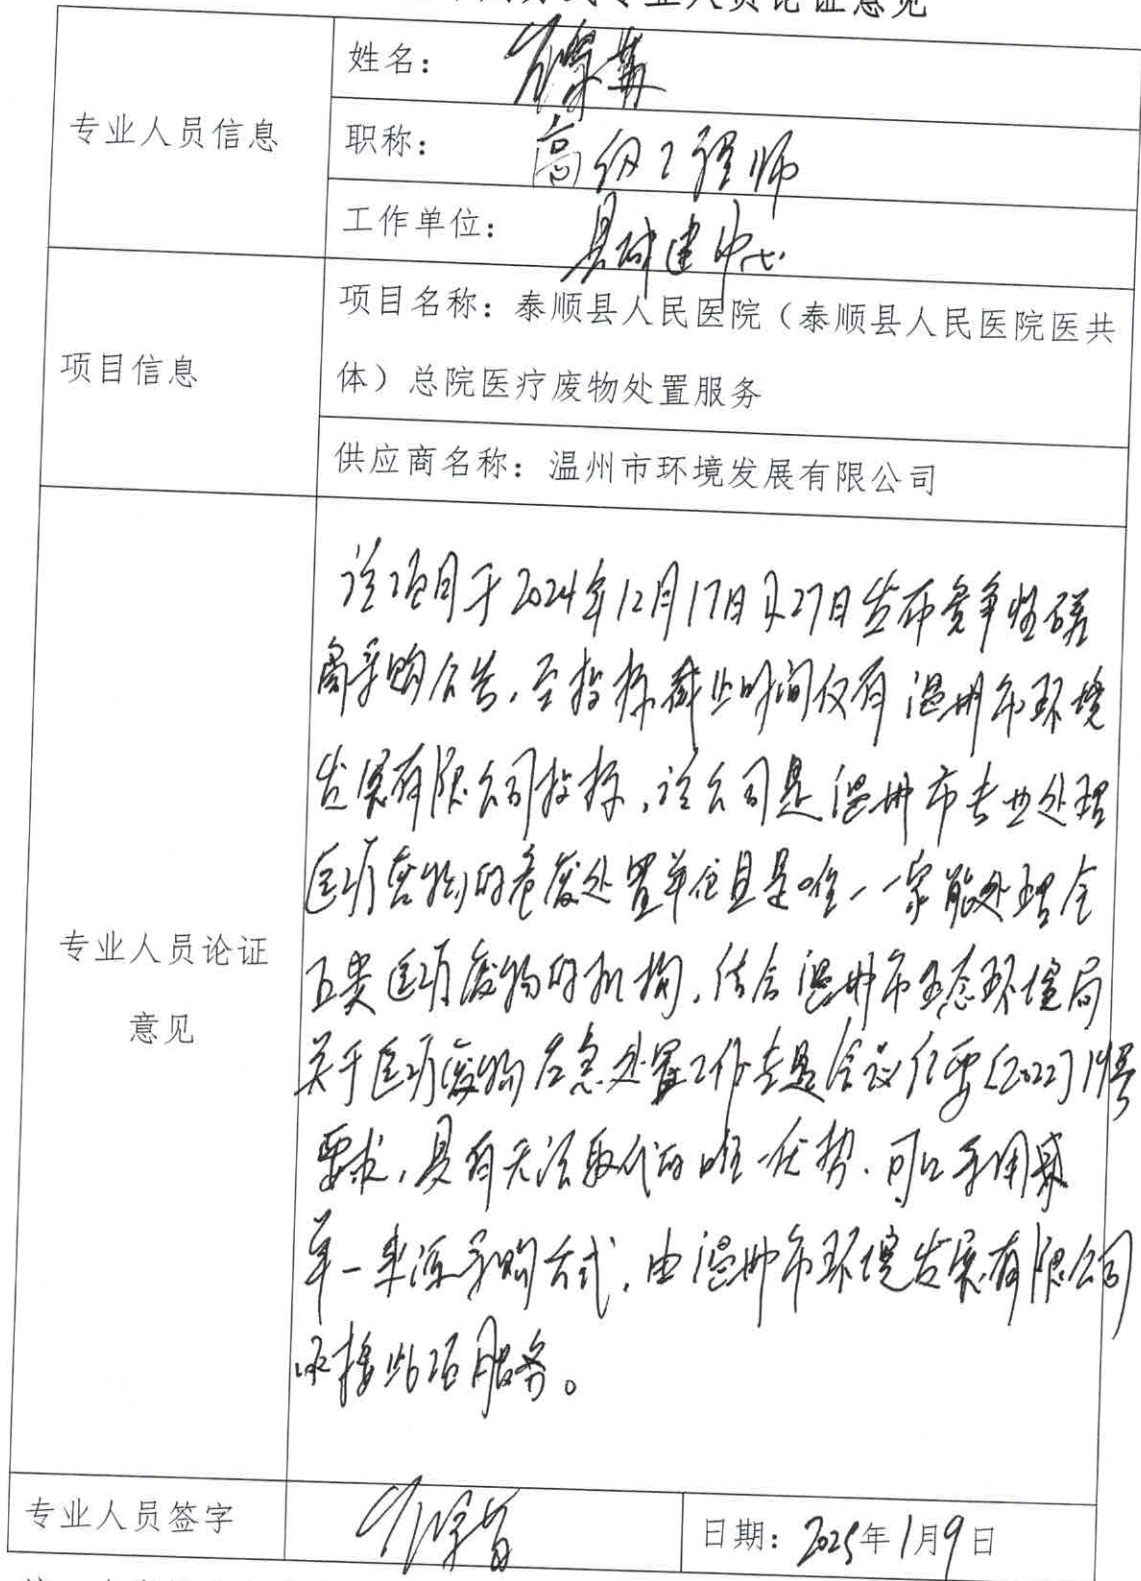 专业人员论证意见
专业人员信息
姓名：
职称：高级工程师
工作单位：县城建中心
项目信息
项目名称：泰顺县人民医院（泰顺县人民医院医共
体）总院医疗废物处置服务
供应商名称：温州市环境发展有限公司
专业人员论证
意见
该项目于2024年12月17日及27日发布竞争性磋
商采购公告，至投标截止时间仅有温州市环境
发展有限公司投标，该公司是温州市专业处理
医疗废物的危废处置单位且是唯一一家能处理全
五类医疗废物的机构，结合温州市生态环境局
关于医疗废物应急处置工作专题会议纪要[2022]19号
要求，具有无法取代的唯一优势，可以采用
单一来源采购方式，由温州市环境发展有限公司
承接此项服务。
专业人员签字
日期：2025年1月9日